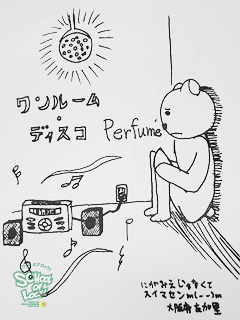 ワンルーム
・
ディスコ Perfume
にがおえじゃなくて
スイマセンm(--)m
大阪府 友加里
School
of
Lock